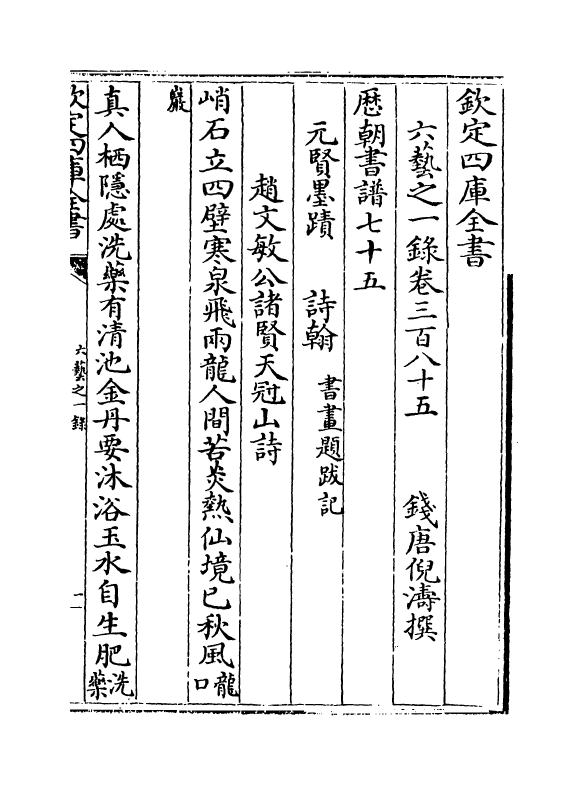 欽定四庫全書
六藝之一錄卷三百八十五 錢唐倪濤撰
歷朝書譜七十五
元賢墨蹟 詩翰 書畫題跋記
趙文敏公諸賢天冠山詩
峭石立四壁寒泉飛雨龍人間苦炎熱仙境已秋風龍口
巖
真人栖隱處洗藥有清池金丹要沐浴玉水自生肥洗藥
欽定四庫全書
六藝之一錄